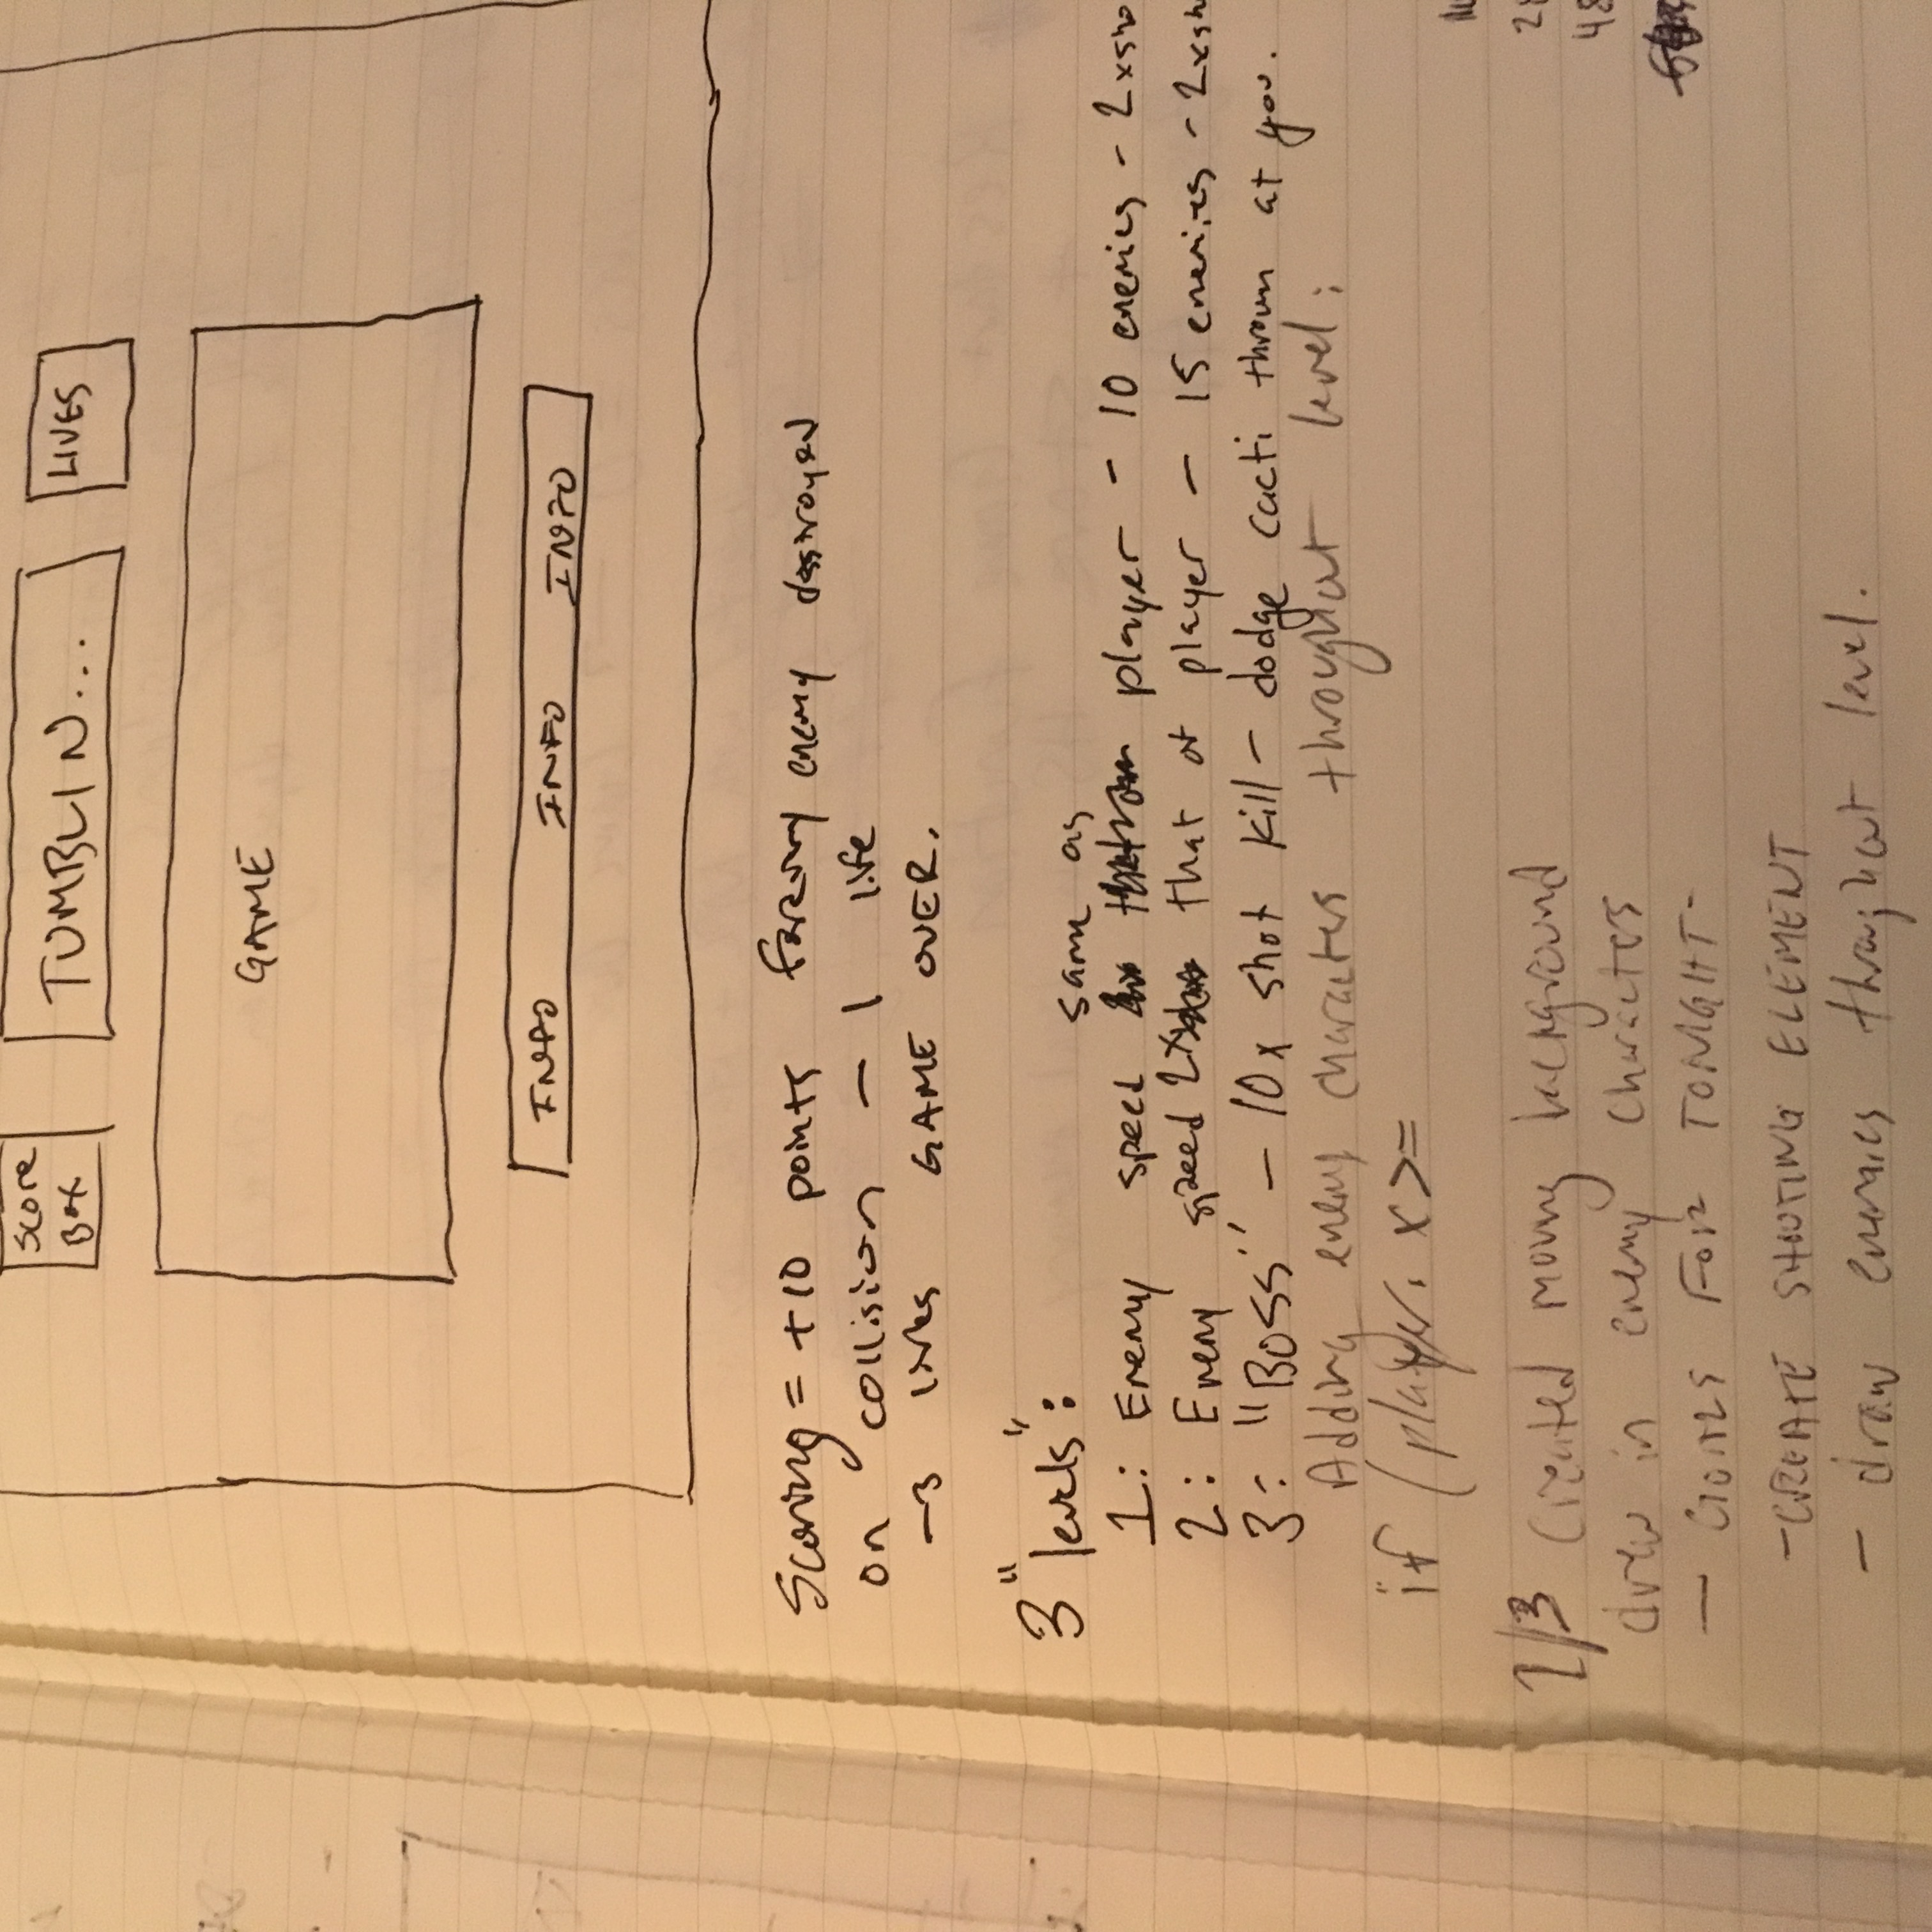 Score
Box
TUMBLIN...
LIVES
GAME
INFO INFO INFO
Scoring = +10 points for every enemy destroyed
on collision - 1 life
-3 lives GAME OVER.
3 "levels":
same as
1: Enemy speed player - 10 enemies - 2x sho
2: Enemy speed 2x that of player - 15 enemies - 2x sh
3: "BOSS" - 10x shot kill - dodge cacti thrown at you.
Adding enemy characters throughout level:
if (player. x >=
2/3 Created moving background
drew in enemy characters
- GOALS FOR TONIGHT-
-CREATE SHOOTING ELEMENT
- draw enemies throughout level.